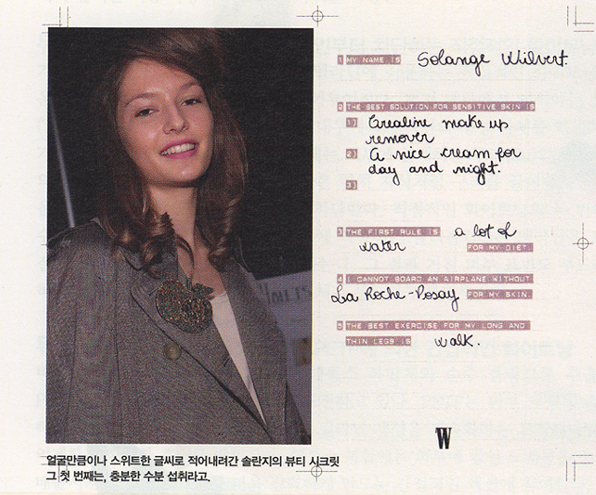 1 MY NAME IS Solange Wilvert.
2 THE BEST SOLUTION FOR SENSITIVE SKIN IS
1) Crealine make up
remover
2) A nice cream for
day and night.
3)
3 THE FIRST RULE IS a lot of
water FOR MY DIET.
4 I CANNOT BOARD AN AIRPLANE WITHOUT
La Roche-Posay FOR MY SKIN.
5 THE BEST EXERCISE FOR MY LONG AND
THIN LEGS IS walk.
W
얼굴만큼이나 스위트한 글씨로 적어내려간 솔란지의 뷰티 시크릿
그 첫 번째는, 충분한 수분 섭취라고.